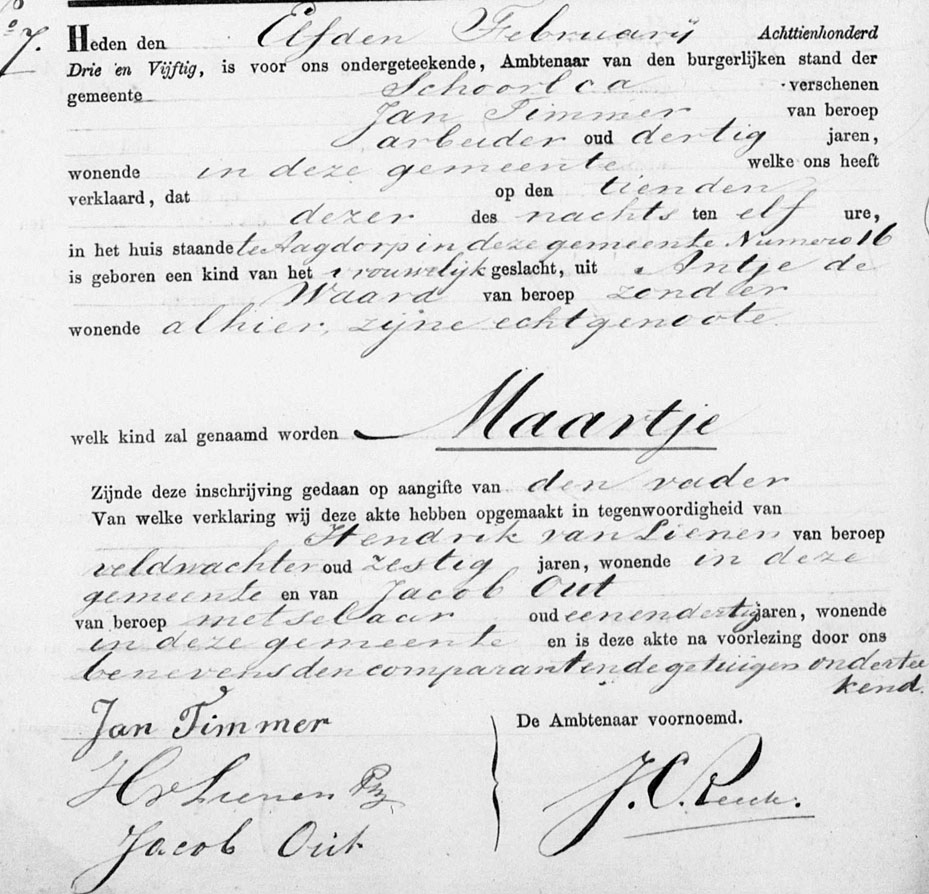 7. Heden den Elfden Februarij Achttienhonderd
Drie en Vijftig, is voor ons ondergeteekende, Ambtenaar van den burgerlijken stand der
gemeente Schoorl c a verschenen
Jan Timmer van beroep
arbeider oud dertig jaren,
wonende in deze gemeente welke ons heeft
verklaard, dat op den tienden
dezer des nachts ten elf ure,
in het huis staande te Aagdorp in deze gemeente Numero 16
is geboren een kind van het vrouwelijk geslacht, uit Antje de
Waard van beroep zonder
wonende alhier, zijne echtgenoote.
welk kind zal genaamd worden Maartje
Zijnde deze inschrijving gedaan op aangifte van den vader
Van welke verklaring wij deze akte hebben opgemaakt in tegenwoordigheid van
Hendrik van Lienen van beroep
veldwachter oud zestig jaren, wonende in deze
gemeente en van Jacob Out
van beroep metselaar oud eenendertig jaren, wonende
in deze gemeente en is deze akte na voorlezing door ons
benevens den comparant en de getuigen ondertee
kend.
Jan Timmer De Ambtenaar voornoemd.
H v Lienen
J. C.
Jacob Out